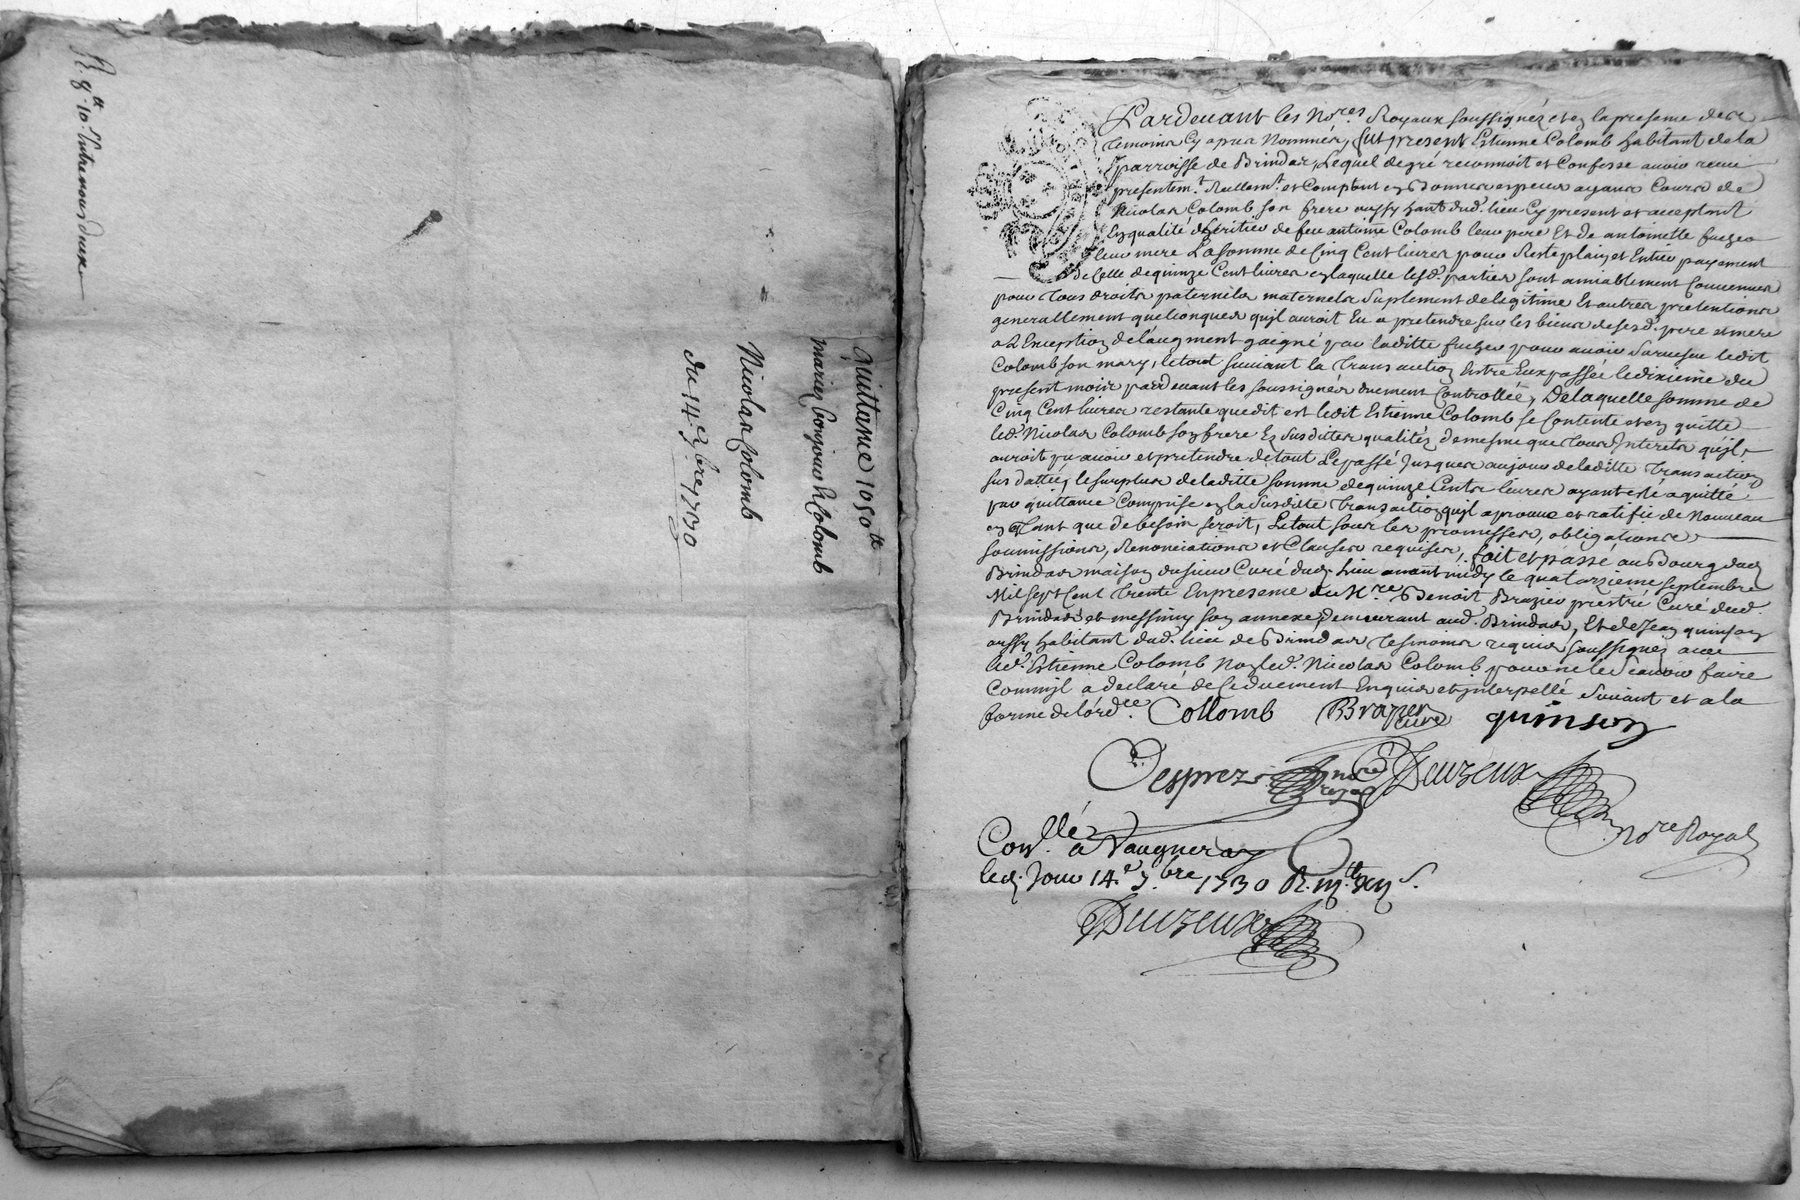 R. 8.tt 10.s
Quittance 1050tt
mariez Conjoins Colomb
Nicolas Colomb
du 14.e 7.bre 1730
Pardevant les No.res Royaux soussignéz et en la presence des
temoins Cy apres Nommés, fut present Estienne Colomb habitant de la
parroisse de Brindas, Lequel de gré reconnoit et Confesse avoir receu
presentem.t Reellem.t et Comptant en bonnes especes ayant Cours de
Nicolas Colomb son frere aussy hant dud. lieu Cy present et acceptant
En qualité d'heritier de feu antoine Colomb leur pere Et de antoinette
leur mere La somme de Cinq Cent livres pour Reste plain et Entier payement
de Celle de quinze Cent livres en laquelle lesd. parties sont amiablement Convenues
pour tous droits paternels maternels Suplement de legitime Et autres pretentions
generallement quelconques qu'jl auroit Eu a pretendre sur les biens de sesd. pere et mere
a L'Exception de l'augment gaigné par laditte pour avoir Survescu ledit
Colomb son mary, le tout suivant la Transaction Entre Eux passée le dixieme du
present mois pardevant les soussignés duement Controllée, De laquelle somme de
Cinq Cent livres restante que dit est ledit Estienne Colomb se Contente et en quitte
led. Nicolas Colomb son frere Es Susdittes qualités de mesme que tous Interets qu'jl
auroit pu avoir et pretendre de tout Le passé Jusques aujour de laditte Transaction
sus dattée, le surplus de laditte somme de quinze Cents livres ayant esté aquitté
par quittance Comprise en la Susditte Transaction qu'jl aprouve et ratifie de Nouveau
en Tant que de besoin seroit, Le tout sous les promesses, obligations
soumissions, Renonciations et Clauses requises, fait et passé au Bourg dud.
Brindas maison du sieur Curé dud. Lieu avant midy le quatorzieme septembre
Mil sept Cent Trente En presence de M.re Benoit Brazier prestre Curé dud.
Brindas et messimy son annexe, demeurant aud. Brindas, Et de Jean quinson
aussy habitant dud. lieu de Brindas Tesmoins requis soussignéz avec
led. Estienne Colomb Non led. Nicolas Colomb pour ne le Scavoir faire
Comm'jl a declaré de Ce duement Enquis et jnterpellé Suivant et a la
forme de l'ord.ce Collomb Brazier curé quinson
Desprez no.re royal Deuzeux
No.re Royal
Con.llé a Vaugneray
led. Jour 14.e 7.bre 1730 R.
Deuzeux